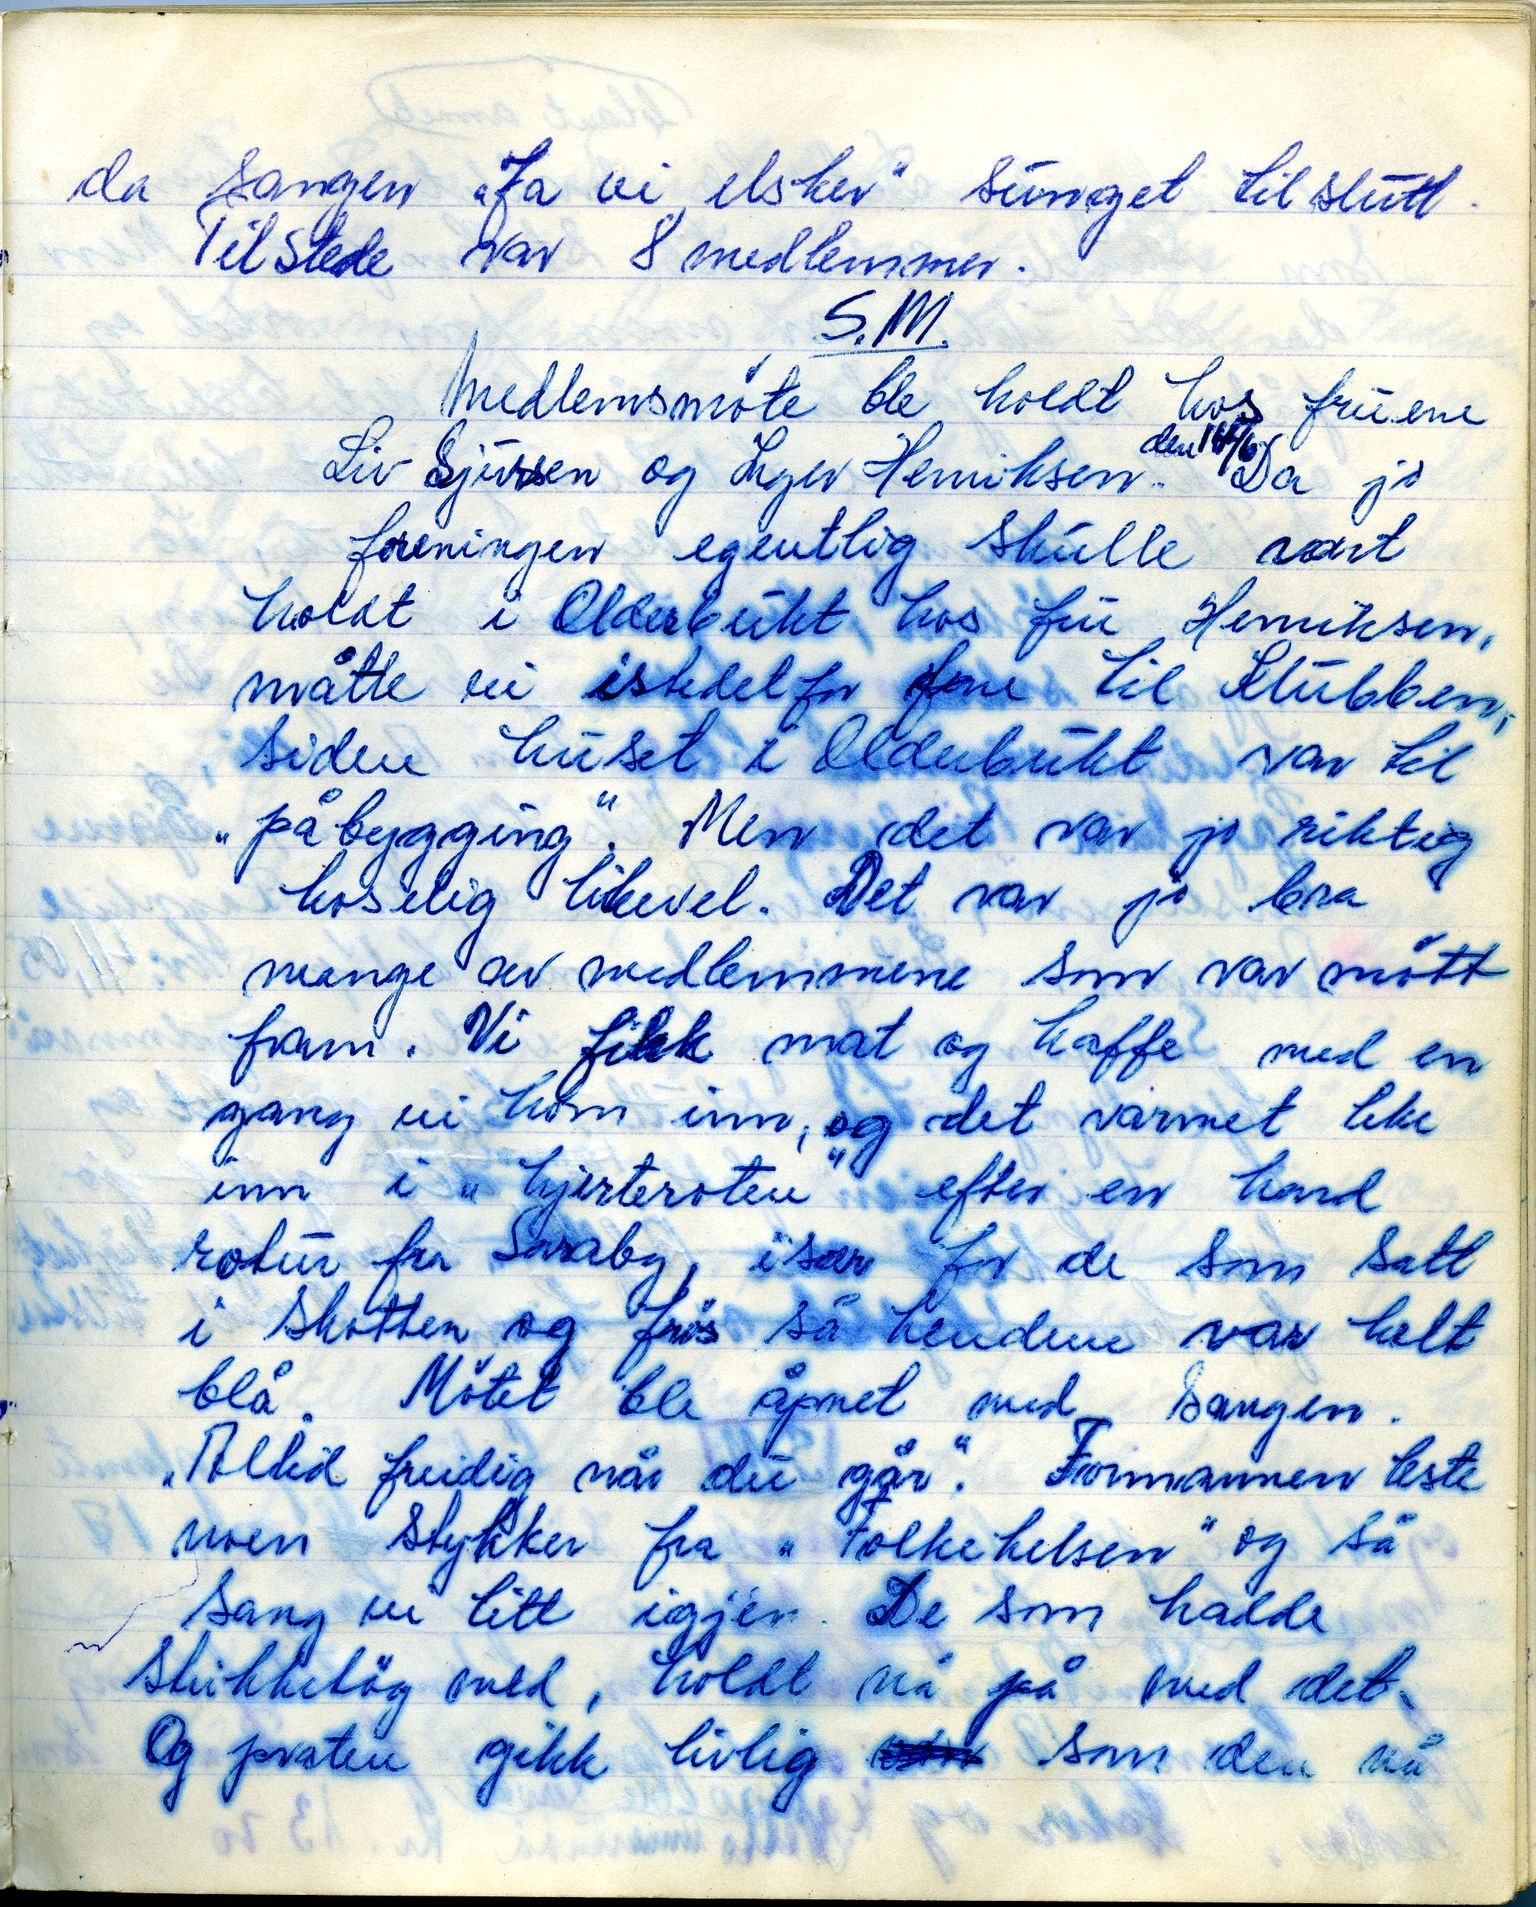 da sangen „Ja vi elsker" sunget til slutt.
Tilstede var 8 medlemmer.
S.M.
Medlemsmöte ble holdt hos fruene
Liv Sjursen og Inger Henriksen den 14/6. Da jo
foreningen egentlig skulle vært
holdt i Olderbukt hos fru Henriksen,
måtte vi istedet for fare til Klubben,
siden huset i Olderbukt var til
„påbygging". Men det var jo riktig
koselig likevel. Det var jo bra
mange av medlemmene som var mött
fram. Vi fikk mat og kaffe med en
gang vi kom inn, og det varmet like
inn i „hjerteroten" efter en hard
rotur fra Saraby, især for de som satt
i skotten og frös så hendene var helt
blå. Mötet ble åpnet med sangen.
„Alltid freidig når du går". Formannen leste
noen stykker fra „Folkehelsen" og så
sang vi litt igjen. De som hadde
strikketög med, holdt nå på med det.
Og praten gikk livlig som den nå